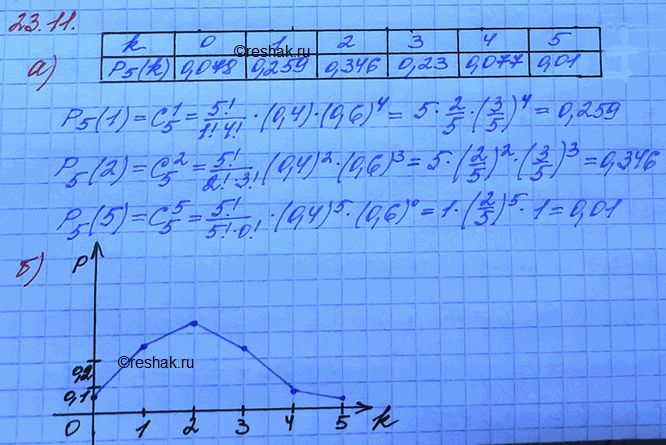 23.11.
а)
k 0 1 2 3 4 5
P₅(k) 0,078 0,259 0,346 0,23 0,077 0,01
©reshak.ru
P₅(1) = C₅¹ = 5!/1!4! · (0,4) · (0,6)⁴ = 5 · 2/5 · (3/5)⁴ = 0,259
P₅(2) = C₅² = 5!/2!·3! · (0,4)² · (0,6)³ = 5 · (2/5)² · (3/5)³ = 0,346
P₅(5) = C₅⁵ = 5!/5!·0! · (0,4)⁵ · (0,6)⁰ = 1 · (2/5)⁵ · 1 = 0,01
б) P
©reshak.ru
0,2
0,1
0 1 2 3 4 5 k